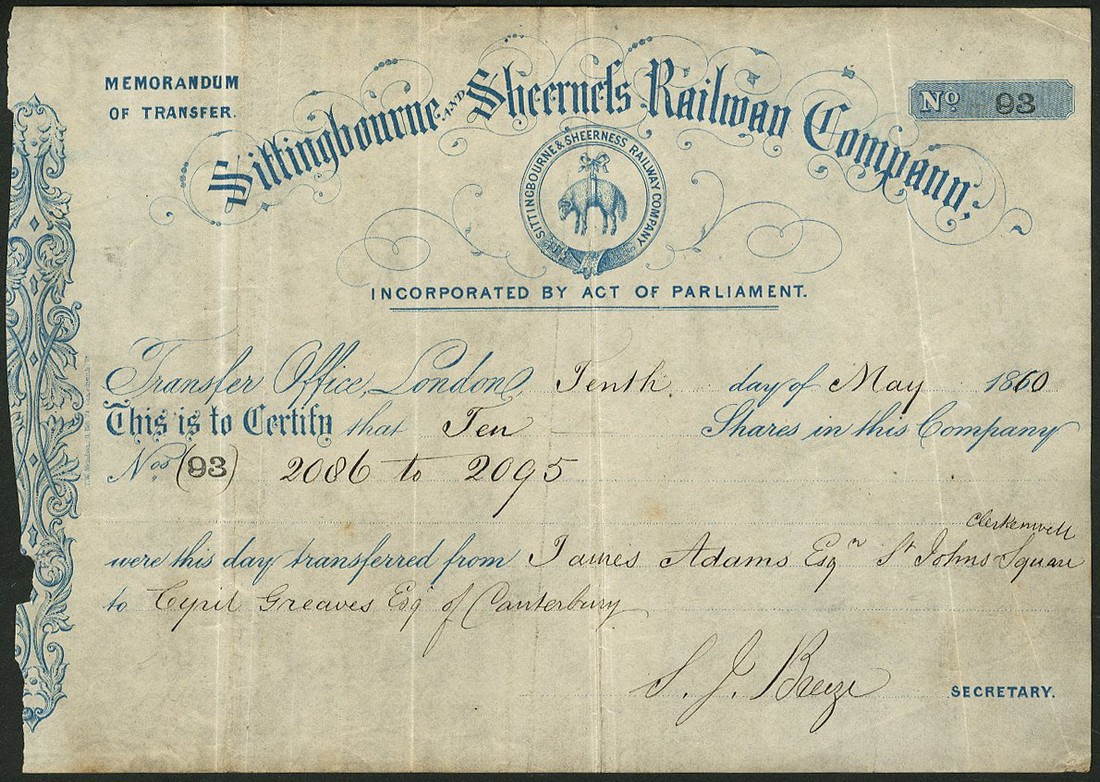 MEMORANDUM
OF TRANSFER.
Sittingbourne AND Sheerneſs Railway Company,
Nº 93
SITTINGBOURNE & SHEERNESS RAILWAY COMPANY
INCORPORATED BY ACT OF PARLIAMENT.
Transfer Office, London, Tenth day of May 1860
This is to Certify that Ten Shares in this Company
Nos (93) 2086 to 2095
Clerkenwell
were this day transferred from James Adams Esqr St Johns Square
to Cyril Greaves Esq of Canterbury
S. J. Breeze
SECRETARY.